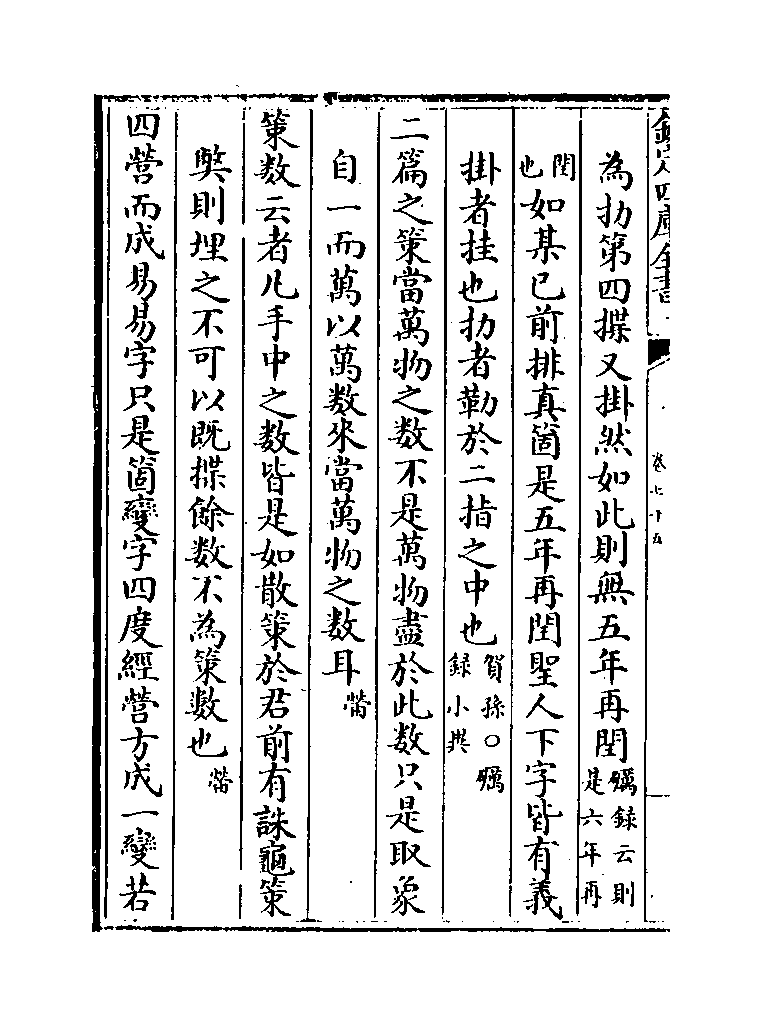 欽定四庫全書
卷七十五
為扐第四揲又掛然如此則無五年再閏礪録云則是六年再
閏也如某已前排真箇是五年再閏聖人下字皆有義
掛者挂也扐者勒於二指之中也賀孫○礪録小異
二篇之策當萬物之數不是萬物盡於此數只是取象
自一而萬以萬數來當萬物之數耳㽦
策數云者凡手中之數皆是如散策於君前有誅龜策
弊則埋之不可以既揲餘數不為策數也㽦
四營而成易易字只是箇變字四度經營方成一變若